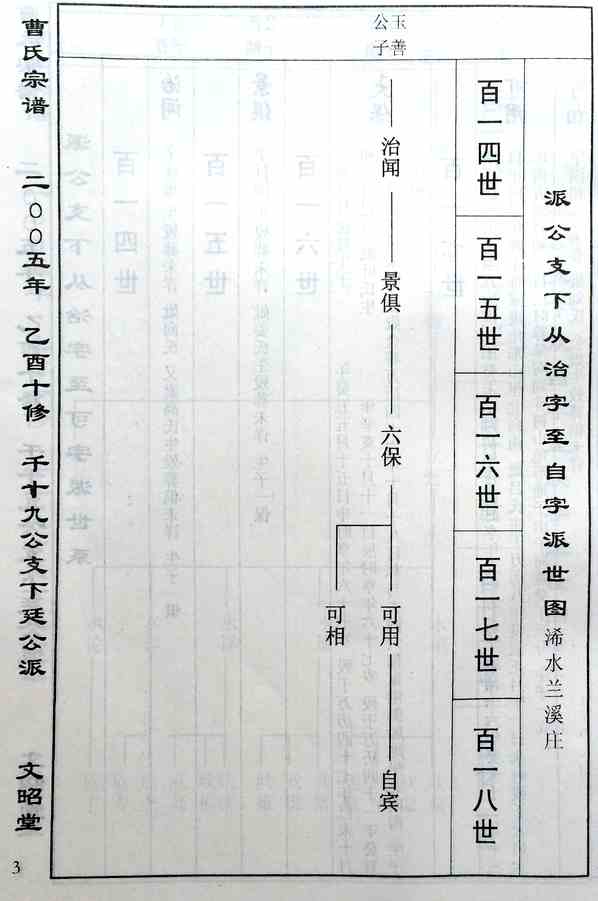 派公支下从治字至自字派世图 浠水兰溪庄
百一四世
百一五世
百一六世
百一七世
百一八世
玉善
公子
治闻
景俱
六保
可用
自宾
可相
曹氏宗谱 二〇〇五年 乙酉十修 千十九公支下廷公派 文昭堂
3